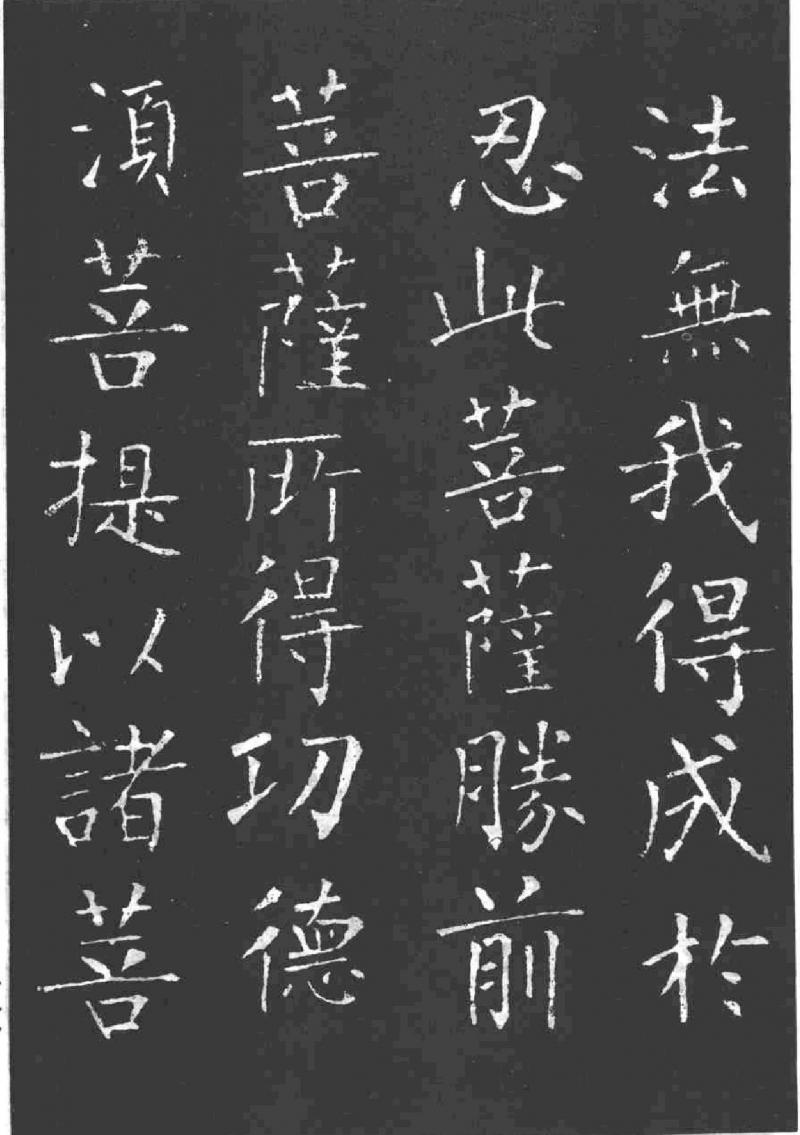 法無我得成於
忍此菩薩勝前
菩薩所得功德
須菩提以諸菩